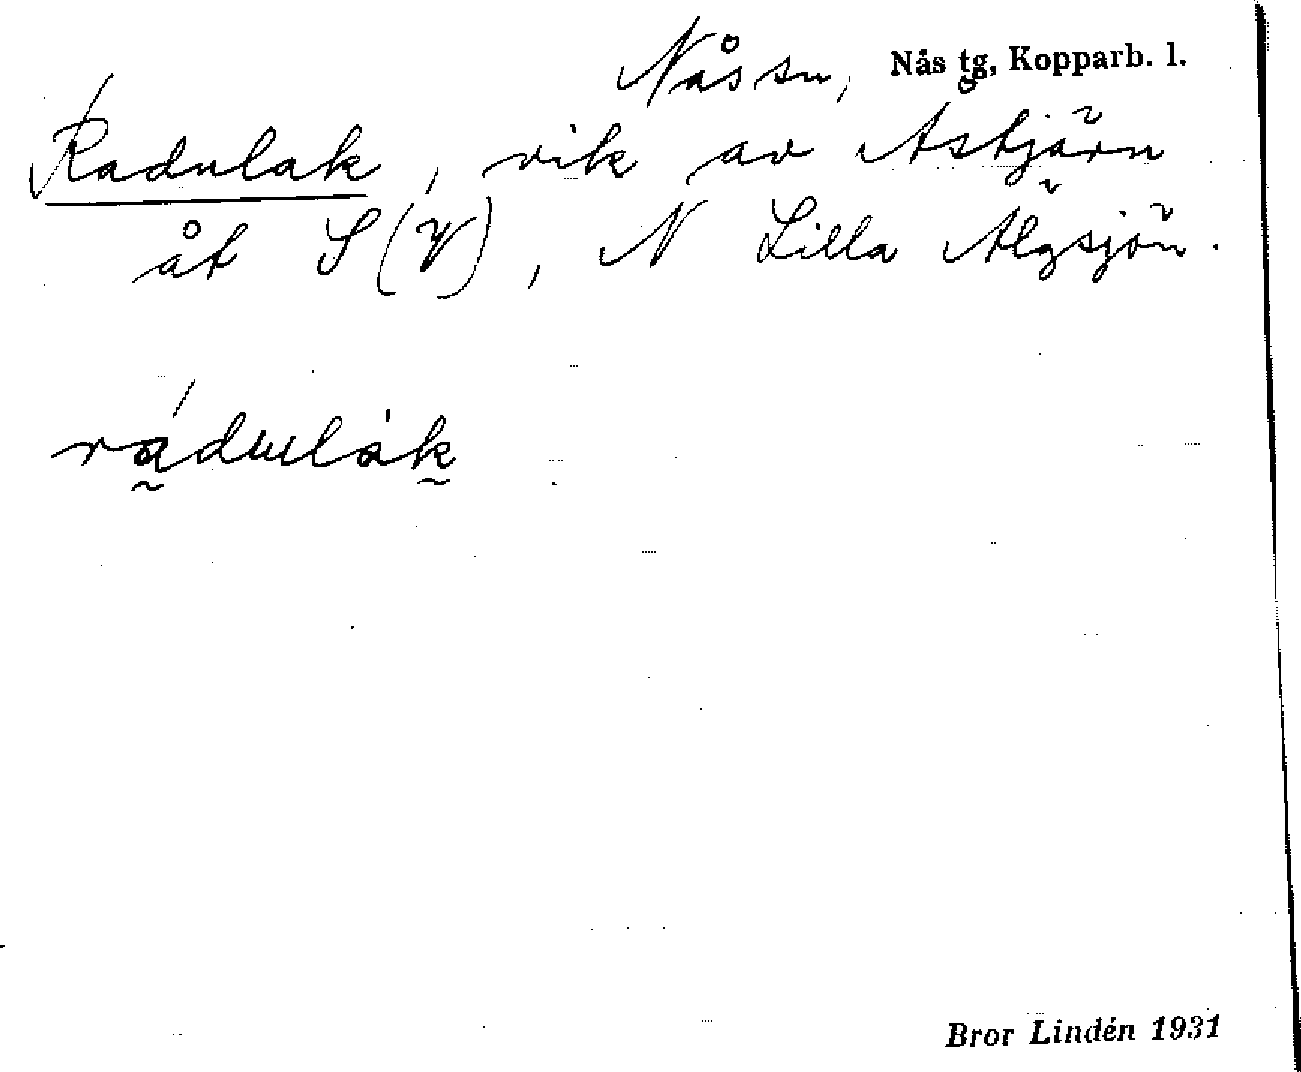 Nås sn, Nås tg, Kopparb. l.
Radulak, vik av Åstjärn
åt S (V), N Lilla Älgsjön.
rádulàk
Bror Lindén 1931